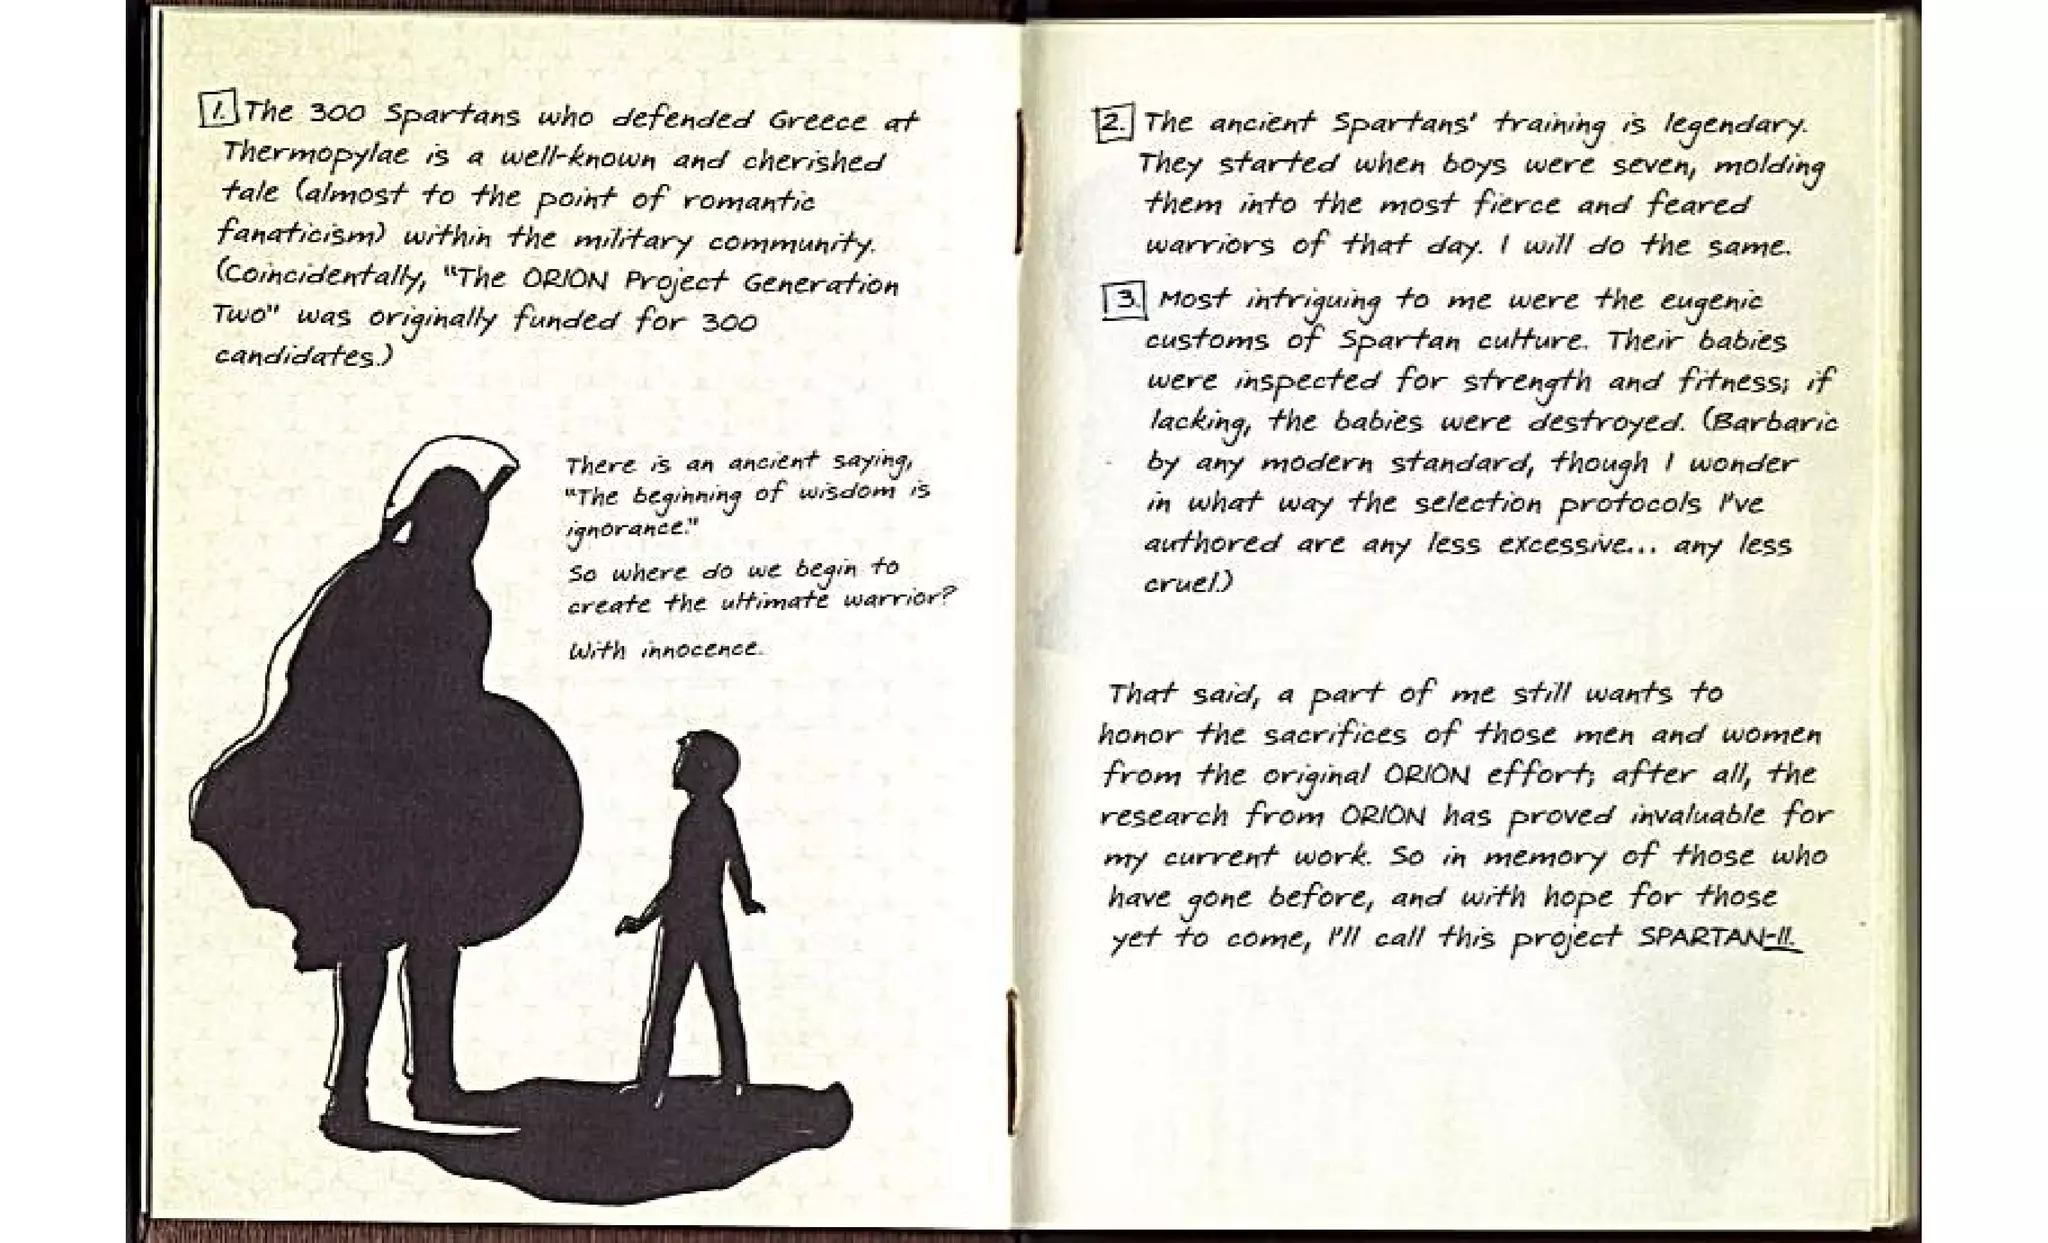 1. The 300 Spartans who defended Greece at
Thermopylae is a well-known and cherished
tale (almost to the point of romantic
fanaticism) within the military community.
(Coincidentally, "The ORION Project Generation
Two" was originally funded for 300
candidates.)
There is an ancient saying,
"The beginning of wisdom is
ignorance."
So where do we begin to
create the ultimate warrior?
With innocence.
2. The ancient Spartans' training is legendary.
They started when boys were seven, molding
them into the most fierce and feared
warriors of that day. I will do the same.
3. Most intriguing to me were the eugenic
customs of Spartan culture. Their babies
were inspected for strength and fitness; if
lacking, the babies were destroyed. (Barbaric
by any modern standard, though I wonder
in what way the selection protocols I've
authored are any less excessive... any less
cruel.)
That said, a part of me still wants to
honor the sacrifices of those men and women
from the original ORION effort; after all, the
research from ORION has proved invaluable for
my current work. So in memory of those who
have gone before, and with hope for those
yet to come, I'll call this project SPARTAN-II.